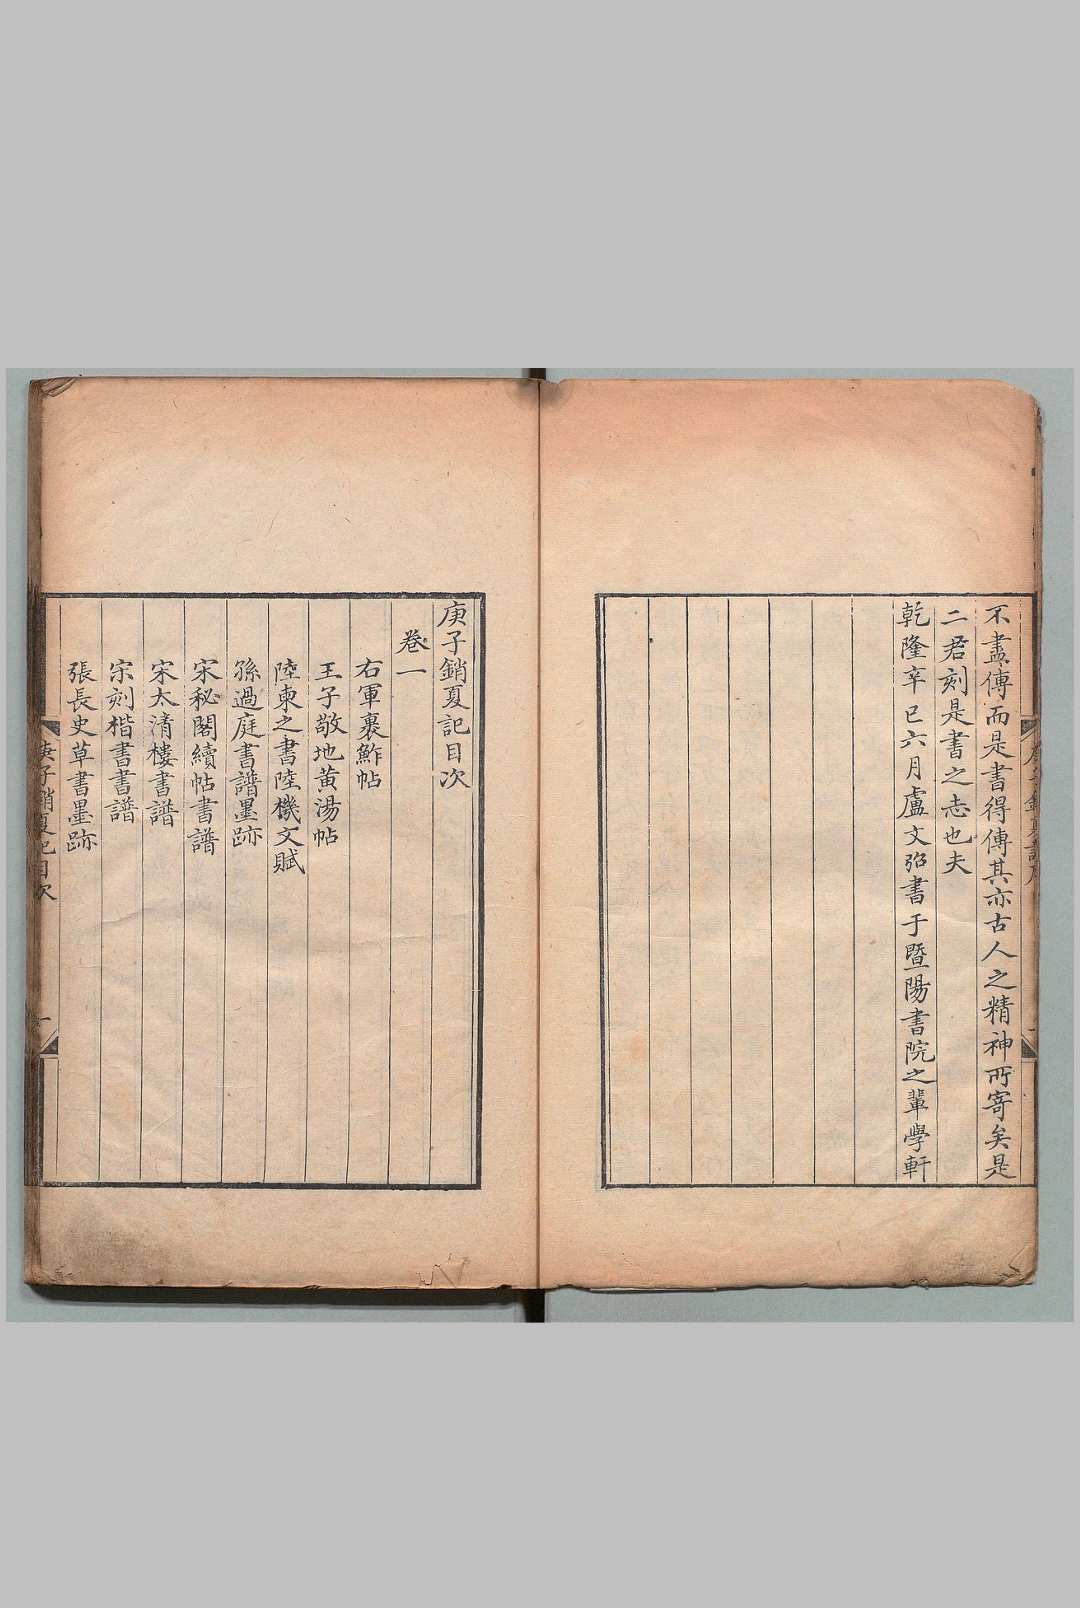 不盡傳而是書得傳其亦古人之精神所寄矣是
二君刻是書之志也夫
乾隆辛巳六月盧文弨書于暨陽書院之輩學軒
庚子銷夏記目次
卷一
右軍裹鮓帖
王子敬地黄湯帖
陸柬之書陸機文賦
孫過庭書譜墨跡
宋秘閣續帖書譜
宋太清樓書譜
宋刻楷書書譜
張長史草書墨跡
庚子銷夏記目次
一